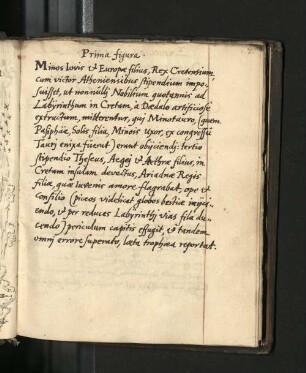 Prima figura.
Minos Iovis & Europæ filius, Rex Cretensium
cum victor Atheniensibus stipendium impo-
suisset, ut nonnulli Nobilium quotannis ad
Labyrinthum in Cretam, a Dædalo artificiosè
extructum, mitterentur, qui Minotauro, (quem
Pasiphäe, Solis filia, Minois Uxor, ex congressu
Tauri enixa fuerat) erant obijciendi: tertio
stipendio Theseus, Aegei & Aethræ filius, in
Cretam insulam devectus, Ariadnæ Regis
filiæ, quæ iuvenis amore flagrabat, ope &
Consilio (piceos videlicet globos bestiæ inijci-
endo, & per reduces Labyrinthj vias fila du-
cendo) periculum capitis effugit, & tandem
omnj errore superato, læta trophæa reportat.